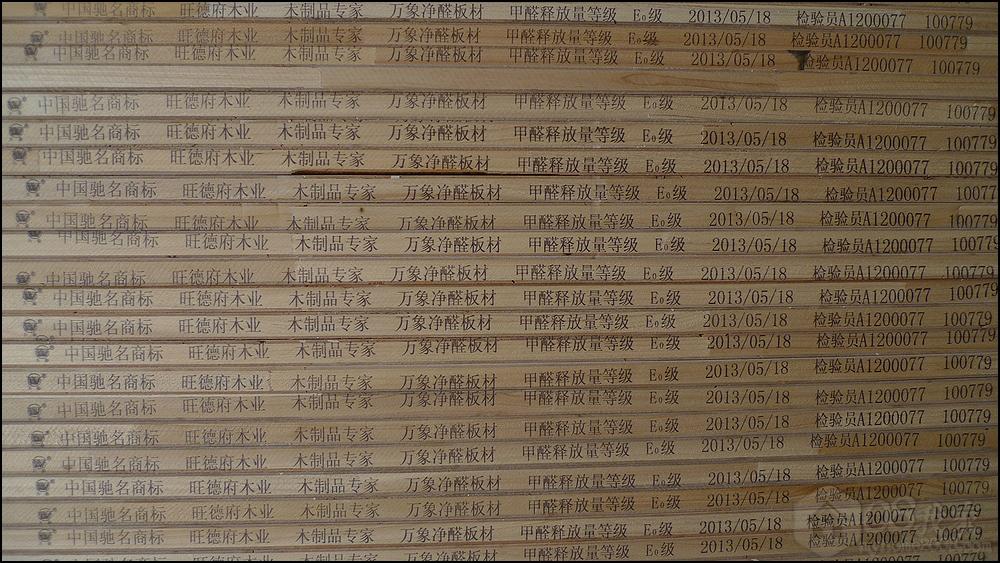 中国驰名商标 旺德府木业 木制品专家 万象净醛板材 甲醛释放量等级 E₀级 2013/05/18 检验员A1200077 100779
中国驰名商标 旺德府木业 木制品专家 万象净醛板材 甲醛释放量等级 E₀级 2013/05/18 检验员A1200077 100779
中国驰名商标 旺德府木业 木制品专家 万象净醛板材 甲醛释放量等级 E₀级 2013/05/18 检验员A1200077 100779
中国驰名商标 旺德府木业 木制品专家 万象净醛板材 甲醛释放量等级 E₀级 2013/05/18 检验员A1200077 100779
中国驰名商标 旺德府木业 木制品专家 万象净醛板材 甲醛释放量等级 E₀级 2013/05/18 检验员A1200077 100779
中国驰名商标 旺德府木业 木制品专家 万象净醛板材 甲醛释放量等级 E₀级 2013/05/18 检验员A1200077 100779
中国驰名商标 旺德府木业 木制品专家 万象净醛板材 甲醛释放量等级 E₀级 2013/05/18 检验员A1200077 10077
中国驰名商标 旺德府木业 木制品专家 万象净醛板材 甲醛释放量等级 E₀级 2013/05/18 检验员A1200077 100779
中国驰名商标 旺德府木业 木制品专家 万象净醛板材 甲醛释放量等级 E₀级 2013/05/18 检验员A1200077 100779
中国驰名商标 旺德府木业 木制品专家 万象净醛板材 甲醛释放量等级 E₀级 2013/05/18 检验员A1200077 100779
中国驰名商标 旺德府木业 木制品专家 万象净醛板材 甲醛释放量等级 E₀级 2013/05/18 检验员A1200077 100779
中国驰名商标 旺德府木业 木制品专家 万象净醛板材 甲醛释放量等级 E₀级 2013/05/18 检验员A1200077 100779
中国驰名商标 旺德府木业 木制品专家 万象净醛板材 甲醛释放量等级 E₀级 2013/05/18 检验员A1200077 100779
中国驰名商标 旺德府木业 木制品专家 万象净醛板材 甲醛释放量等级 E₀级 2013/05/18 检验员A1200077 100779
中国驰名商标 旺德府木业 木制品专家 万象净醛板材 甲醛释放量等级 E₀级 2013/05/18 检验员A1200077 100779
中国驰名商标 旺德府木业 木制品专家 万象净醛板材 甲醛释放量等级 E₀级 2013/05/18 检验员A1200077 100779
中国驰名商标 旺德府木业 木制品专家 万象净醛板材 甲醛释放量等级 E₀级 2013/05/18 检验员A1200077 100779
中国驰名商标 旺德府木业 木制品专家 万象净醛板材 甲醛释放量等级 E₀级 2013/05/18 检验员A1200077 100779
中国驰名商标 旺德府木业 木制品专家 万象净醛板材 甲醛释放量等级 E₀级 2013/05/18 检验员A1200077 100779
中国驰名商标 旺德府木业 木制品专家 万象净醛板材 甲醛释放量等级 E₀级 2013/05/18 检验员A1200077